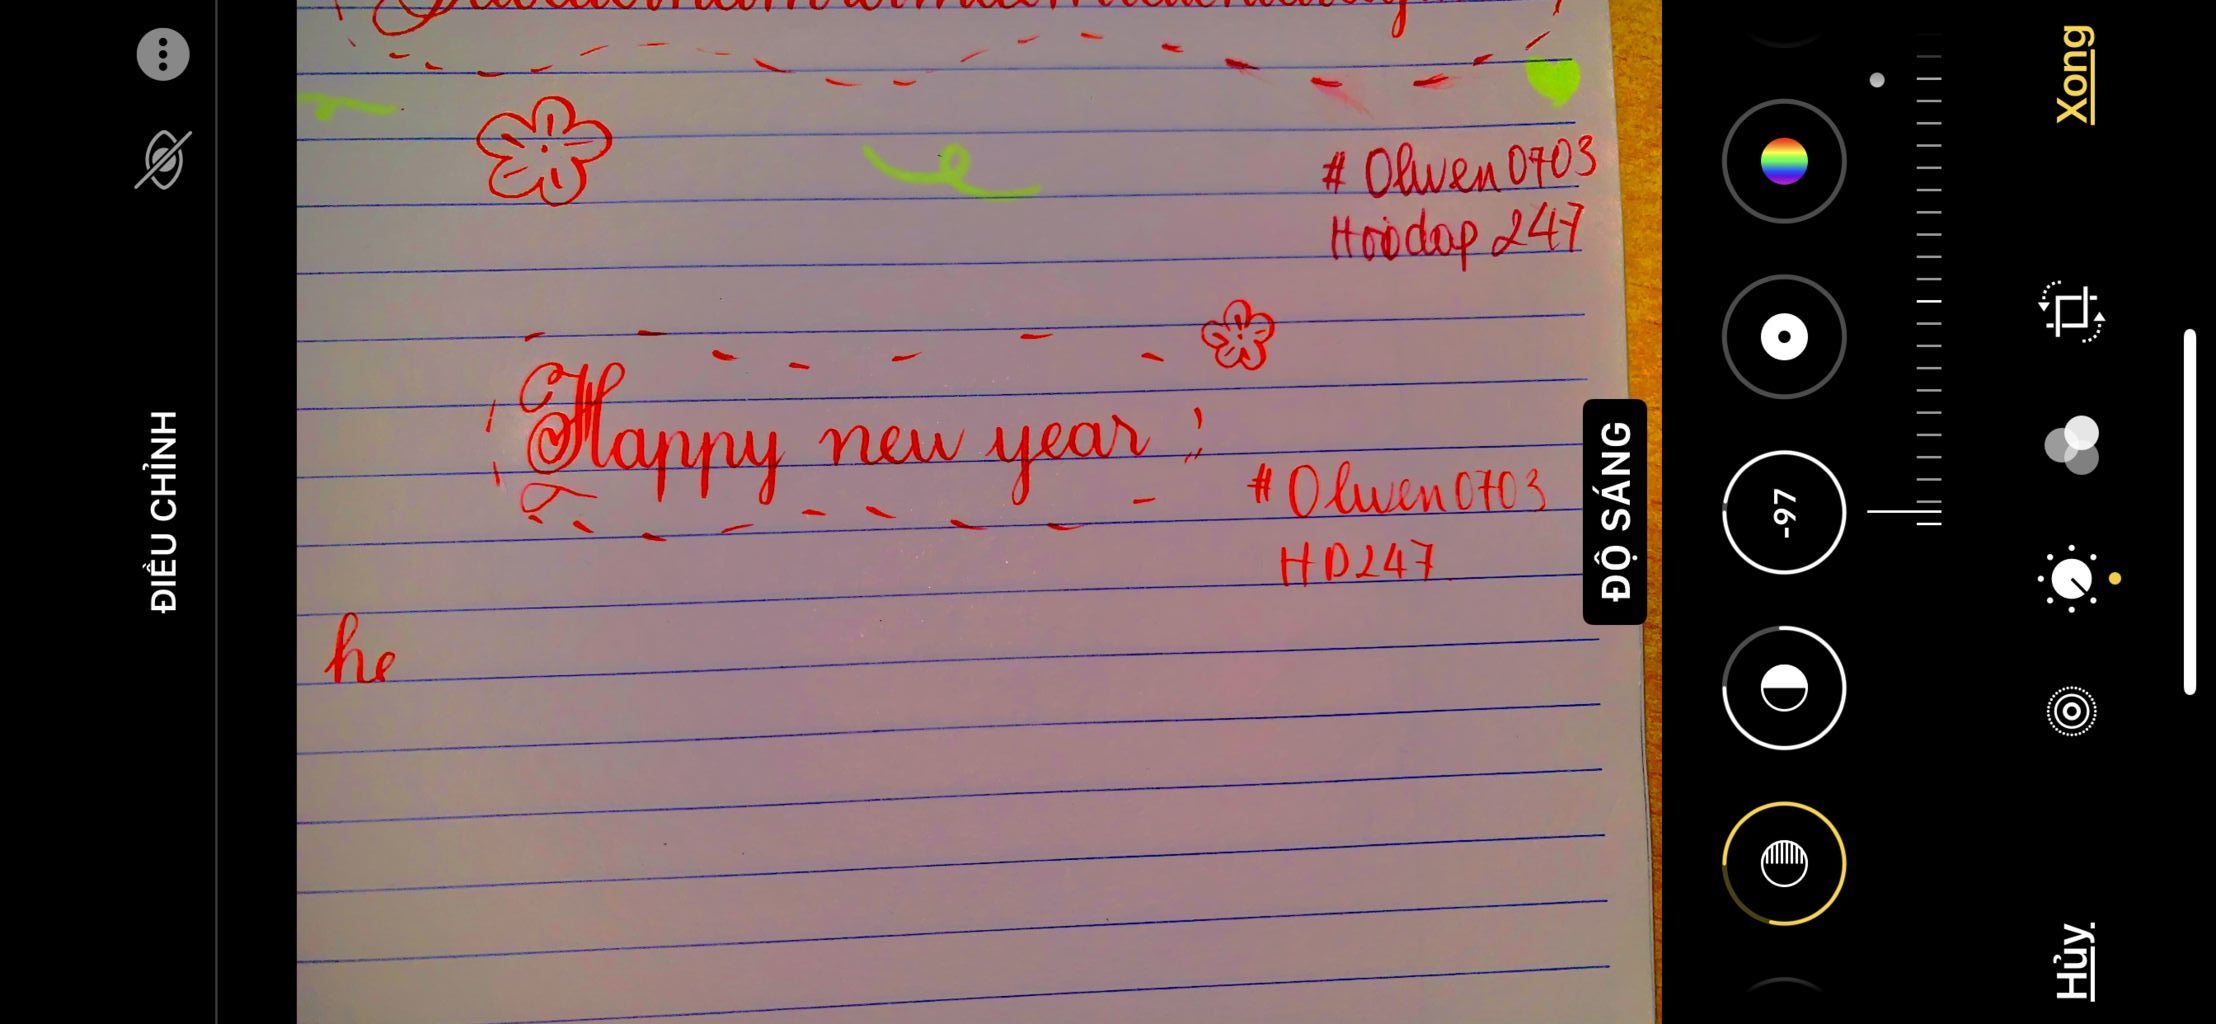 # Olwen0703
Hoidap 247
Happy new year !
# Olwen0703
HD247
he
ĐIỀU CHỈNH
ĐỘ SÁNG
-97
Xong
Hủy